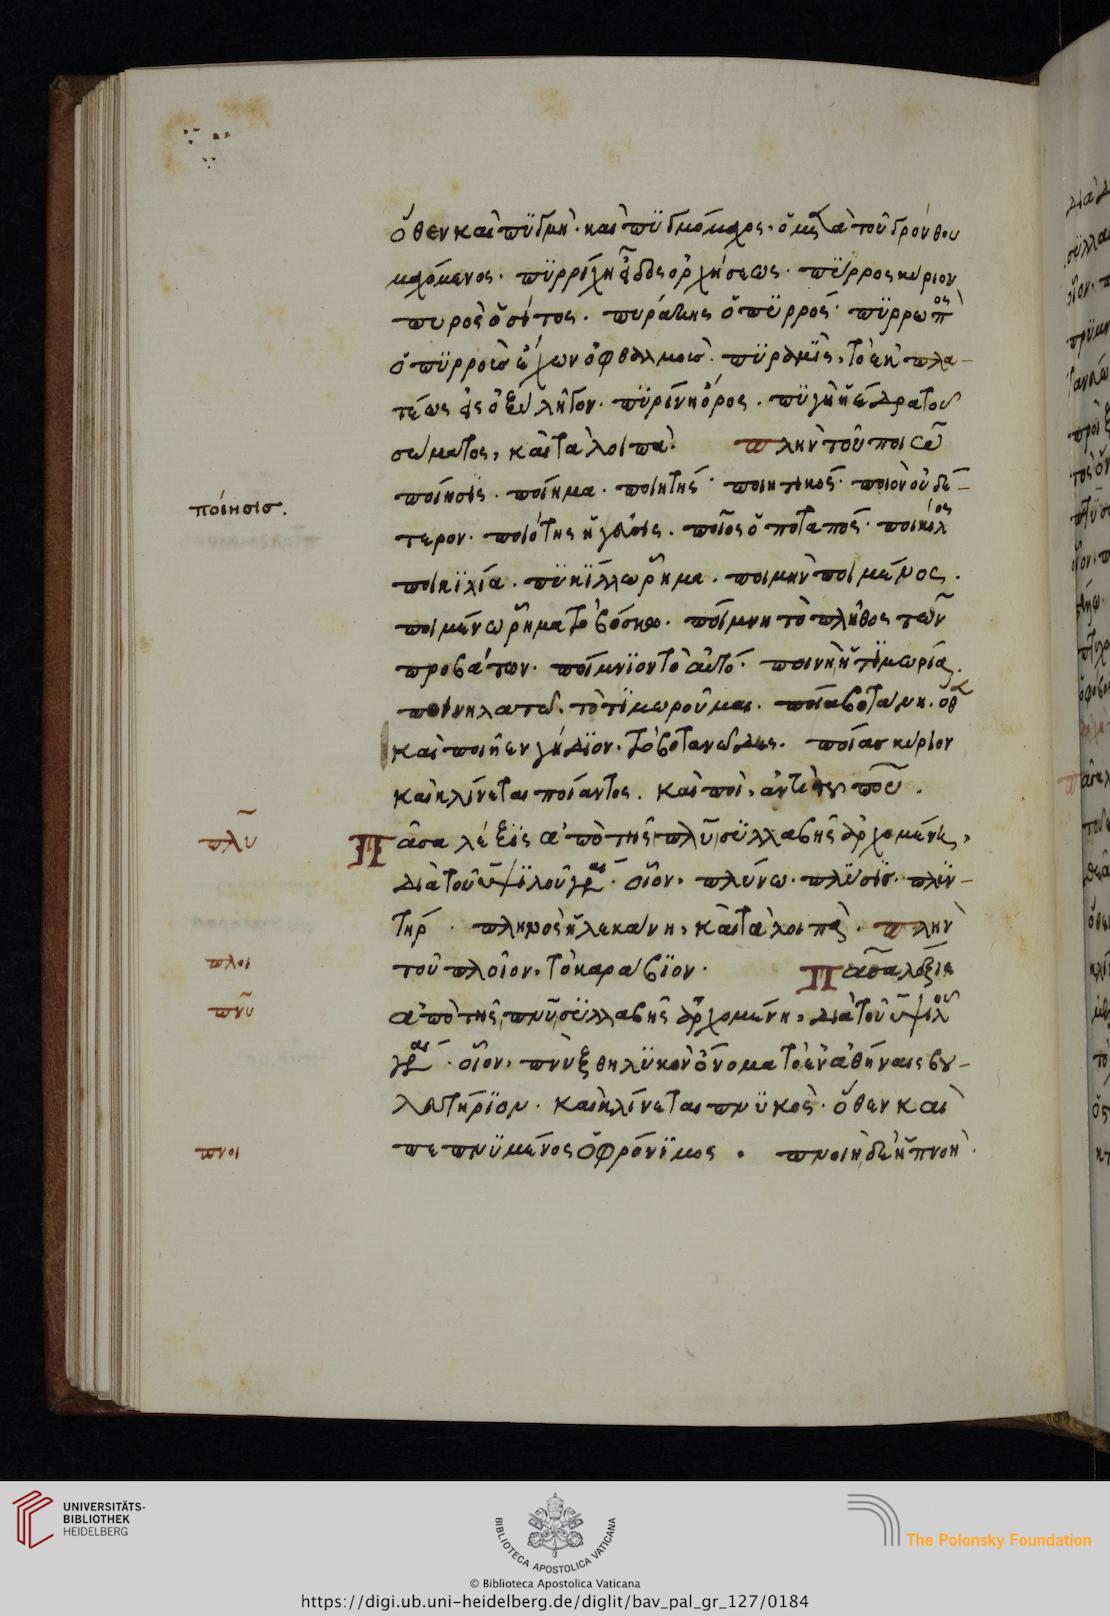 ὅθεν καὶ πϋγμὴ· καὶ πϋγμομάχος· ὁ μετὰ τοῦ γρόνθου
μαχόμενος· πϋρρίχη εἶδος ὀρχήσεως· πϋρρος κύριον
πυρὸς ὁ σίτος· πυράκης ὁ πϋρρός·
ὁ πϋρροὺς ἔχων ὀφθαλμούς· πϋραμὶς, τὸ ἐκ πλα-
τέως εἰς ὀξὺ λῆγον· πϋρίνη ὄρος· πϋγὴ ἡ ἕδρα τοῦ
σώματος, καὶ τὰ λοιπά· πλὴν τοῦ ποιῶ
ποίησις· ποίημα· ποιητής· ποιητικός· ποιὸν οὐδέ-
τερον· ποιότης ἡ· ποῖος ὁ ποταπός· ποικίλος
ποικϊλία· πϋκϊλλω ῥῆμα· ποιμὴν ποιμένος·
ποιμένω ῥῆμα τὸ βόσκω· ποίμνη τὸ πλῆθος τῶν
προβάτων· ποίμνϊον τὸ αὐτό· ποινὴ ἡ τϊμωρία·
ποινηλατῶ· τὸ τϊμωροῦμαι· ποία βοτάνη· ὅθεν
καὶ ποιῆεν γήδϊον· τὸ βοτανῶδες· ποίας κύριον
καὶ κλίνεται ποίαντος· καὶ ποὶ, ἀντὶ τοῦ ποῦ·
ποίησισ.
Πᾶσα λέξϊς ἀπὸ τῆς πλῦ σϋλλαβῆς ἀρχομένη,
πλῦ
διὰ τοῦ ῦ ψϊλοῦ γράφεται· οἷον, πλύνω· πλϋσϊς· πλϋν-
τήρ· πλημος ἡ λεκάνη, καὶ τὰ λοιπά· πλὴν
τοῦ πλοῖον, τὸ καράβϊον· Πᾶσα λέξις
πλοι
ἀπὸ τῆς πνῦ σϋλλαβῆς ἀρχομένη, διὰ τοῦ ῦ ψϊλοῦ
πνῦ
γράφεται· οἷον, πνὺξ θηλϋκὸν ὄνομα τὸ ἐν ἀθήναις βου-
λευτήρϊον· καὶ κλίνεται πνϋκὸς· ὅθεν καὶ
πεπνϋμένος ὁ φρόνϊμος· πνοιὴ δὲ ἡ πνοή·
πνοι
UNIVERSITÄTS-
BIBLIOTHEK
HEIDELBERG
BIBLIOTECA APOSTOLICA VATICANA
The Polonsky Foundation
© Biblioteca Apostolica Vaticana
https://digi.ub.uni-heidelberg.de/diglit/bav_pal_gr_127/0184